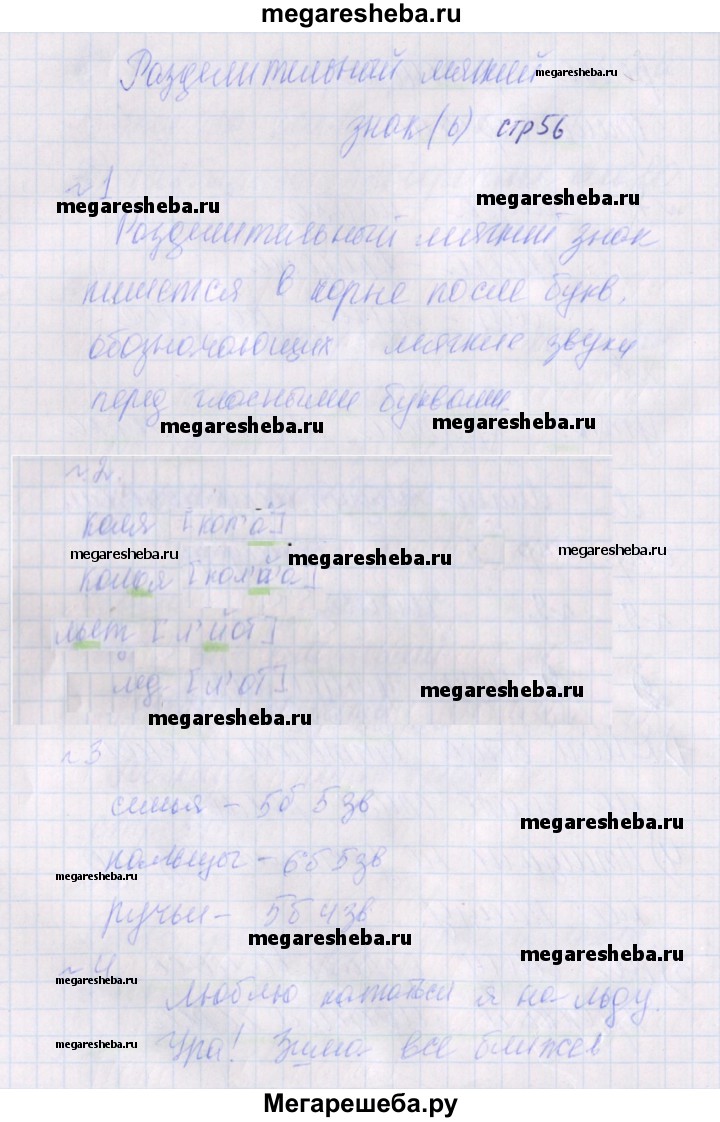 megaresheba.ru
Разделительный мягкий megaresheba.ru
знак (ь) стр 56
№1
megaresheba.ru megaresheba.ru
Разделительный мягкий знак
пишется в корне после букв,
обозначающих мягкие звуки
перед гласными буквами.
megaresheba.ru megaresheba.ru
№2.
Коля [кол'а]
megaresheba.ru megaresheba.ru megaresheba.ru
[кол'й'а]
льёт [л'йот]
лёд [л'от]
megaresheba.ru
megaresheba.ru
№3
семья - 5б 5зв
megaresheba.ru
пальцы - 6б 5зв
megaresheba.ru
ручьи - 5б 4зв
megaresheba.ru
megaresheba.ru
№4
megaresheba.ru
Люблю кататься я на льду.
Ура! Зима все ближе
megaresheba.ru
Мегарешеба.ру